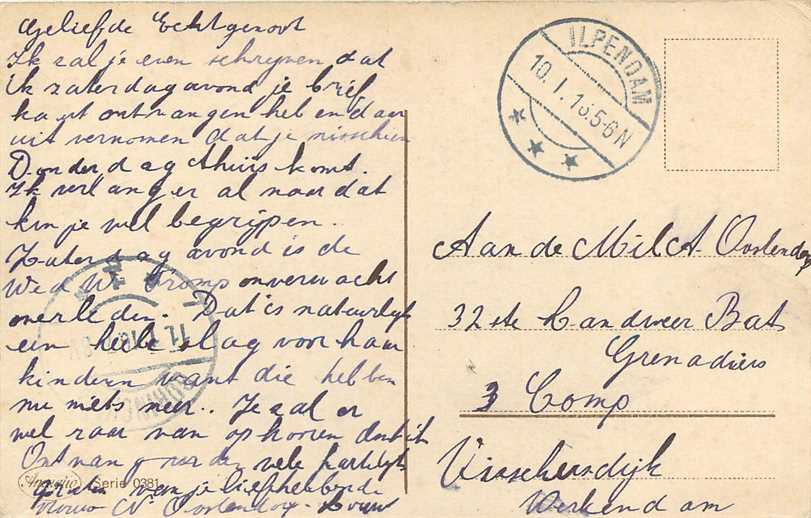 Geliefde Echtgenoot
Ik zal je even schrijven dat
ik zaterdag avond je brief
kaart ontvangen heb en daar
uit vernomen dat je misschien
Donderdag thuis komt.
Ik verlang er al naar dat
kun je wel begrijpen.
Zaterdag avond is de
Wed W Tromp onverwacht
overleden. Dat is natuurlijk
een heele slag voor haar
kinderen want die hebben
nu niets meer.. Je zal er
wel raar van op hooren dat
Ontvang verder vele hartelijke
groeten van je liefhebbende
vrouw Oostendorp
Serie 0381
ILPENDAM
10. 1. 16. 5-6N
Aan de Milt A. Oostendorp
32ste Landweer Bat
Grenadiers
3 Comp
Visschersdijk
Werkendam